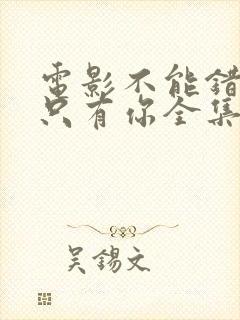 電影不能錯
只有你全集
吴錫文